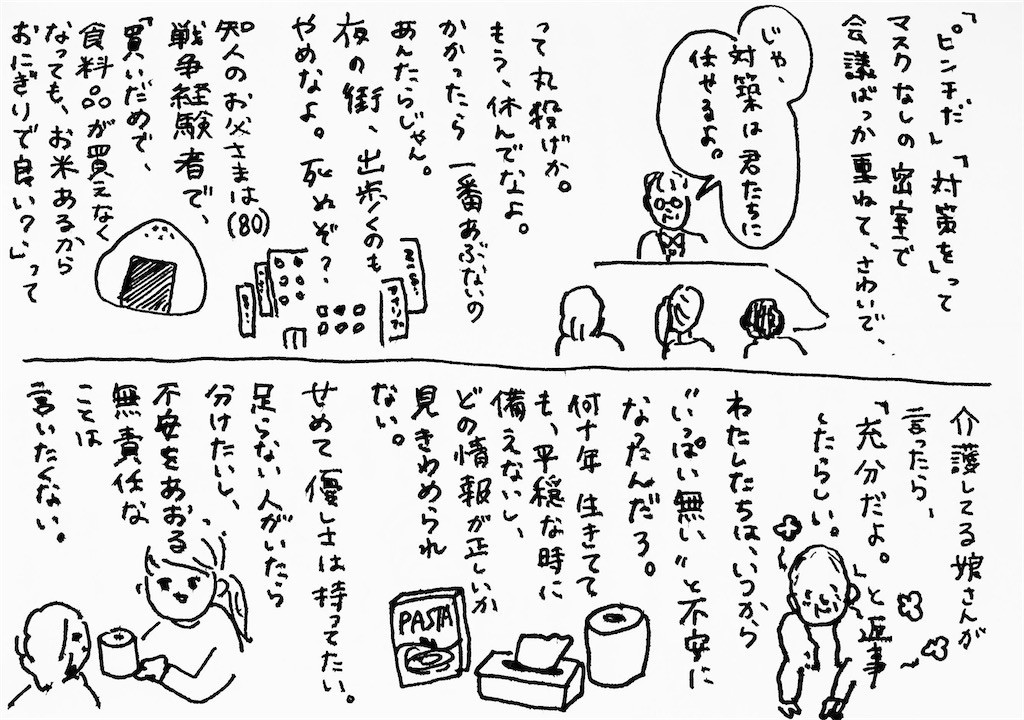 「ピンチだ」「対策を」って
マスクなしの密室で
会議ばっか重ねて、さわいで、
じゃ、
対策は君たちに
任せるよ。
って丸投げか。
もう、休んでなよ。
かかったら一番あぶないの
あんたらじゃん。
夜の街、出歩くのも
やめなよ。死ぬぞ??
知人のお父さまは(80)
戦争経験者で、
「買いだめで、
食料品が買えなく
なっても、お米あるから
おにぎりで良い?」って
介護してる娘さんが
言ったら、
「充分だよ。」と返事
したらしい。
わたしたちは、いつから
"いっぱい無い"と不安に
なったんだろ。
何十年生きてて
も、平穏な時に
備えないし、
どの情報が正しいか
見きわめられ
ない。
PASTA
せめて優しさは持ってたい。
足らない人がいたら
分けたいし、
不安をあおる
無責任な
ことは
言いたくない。